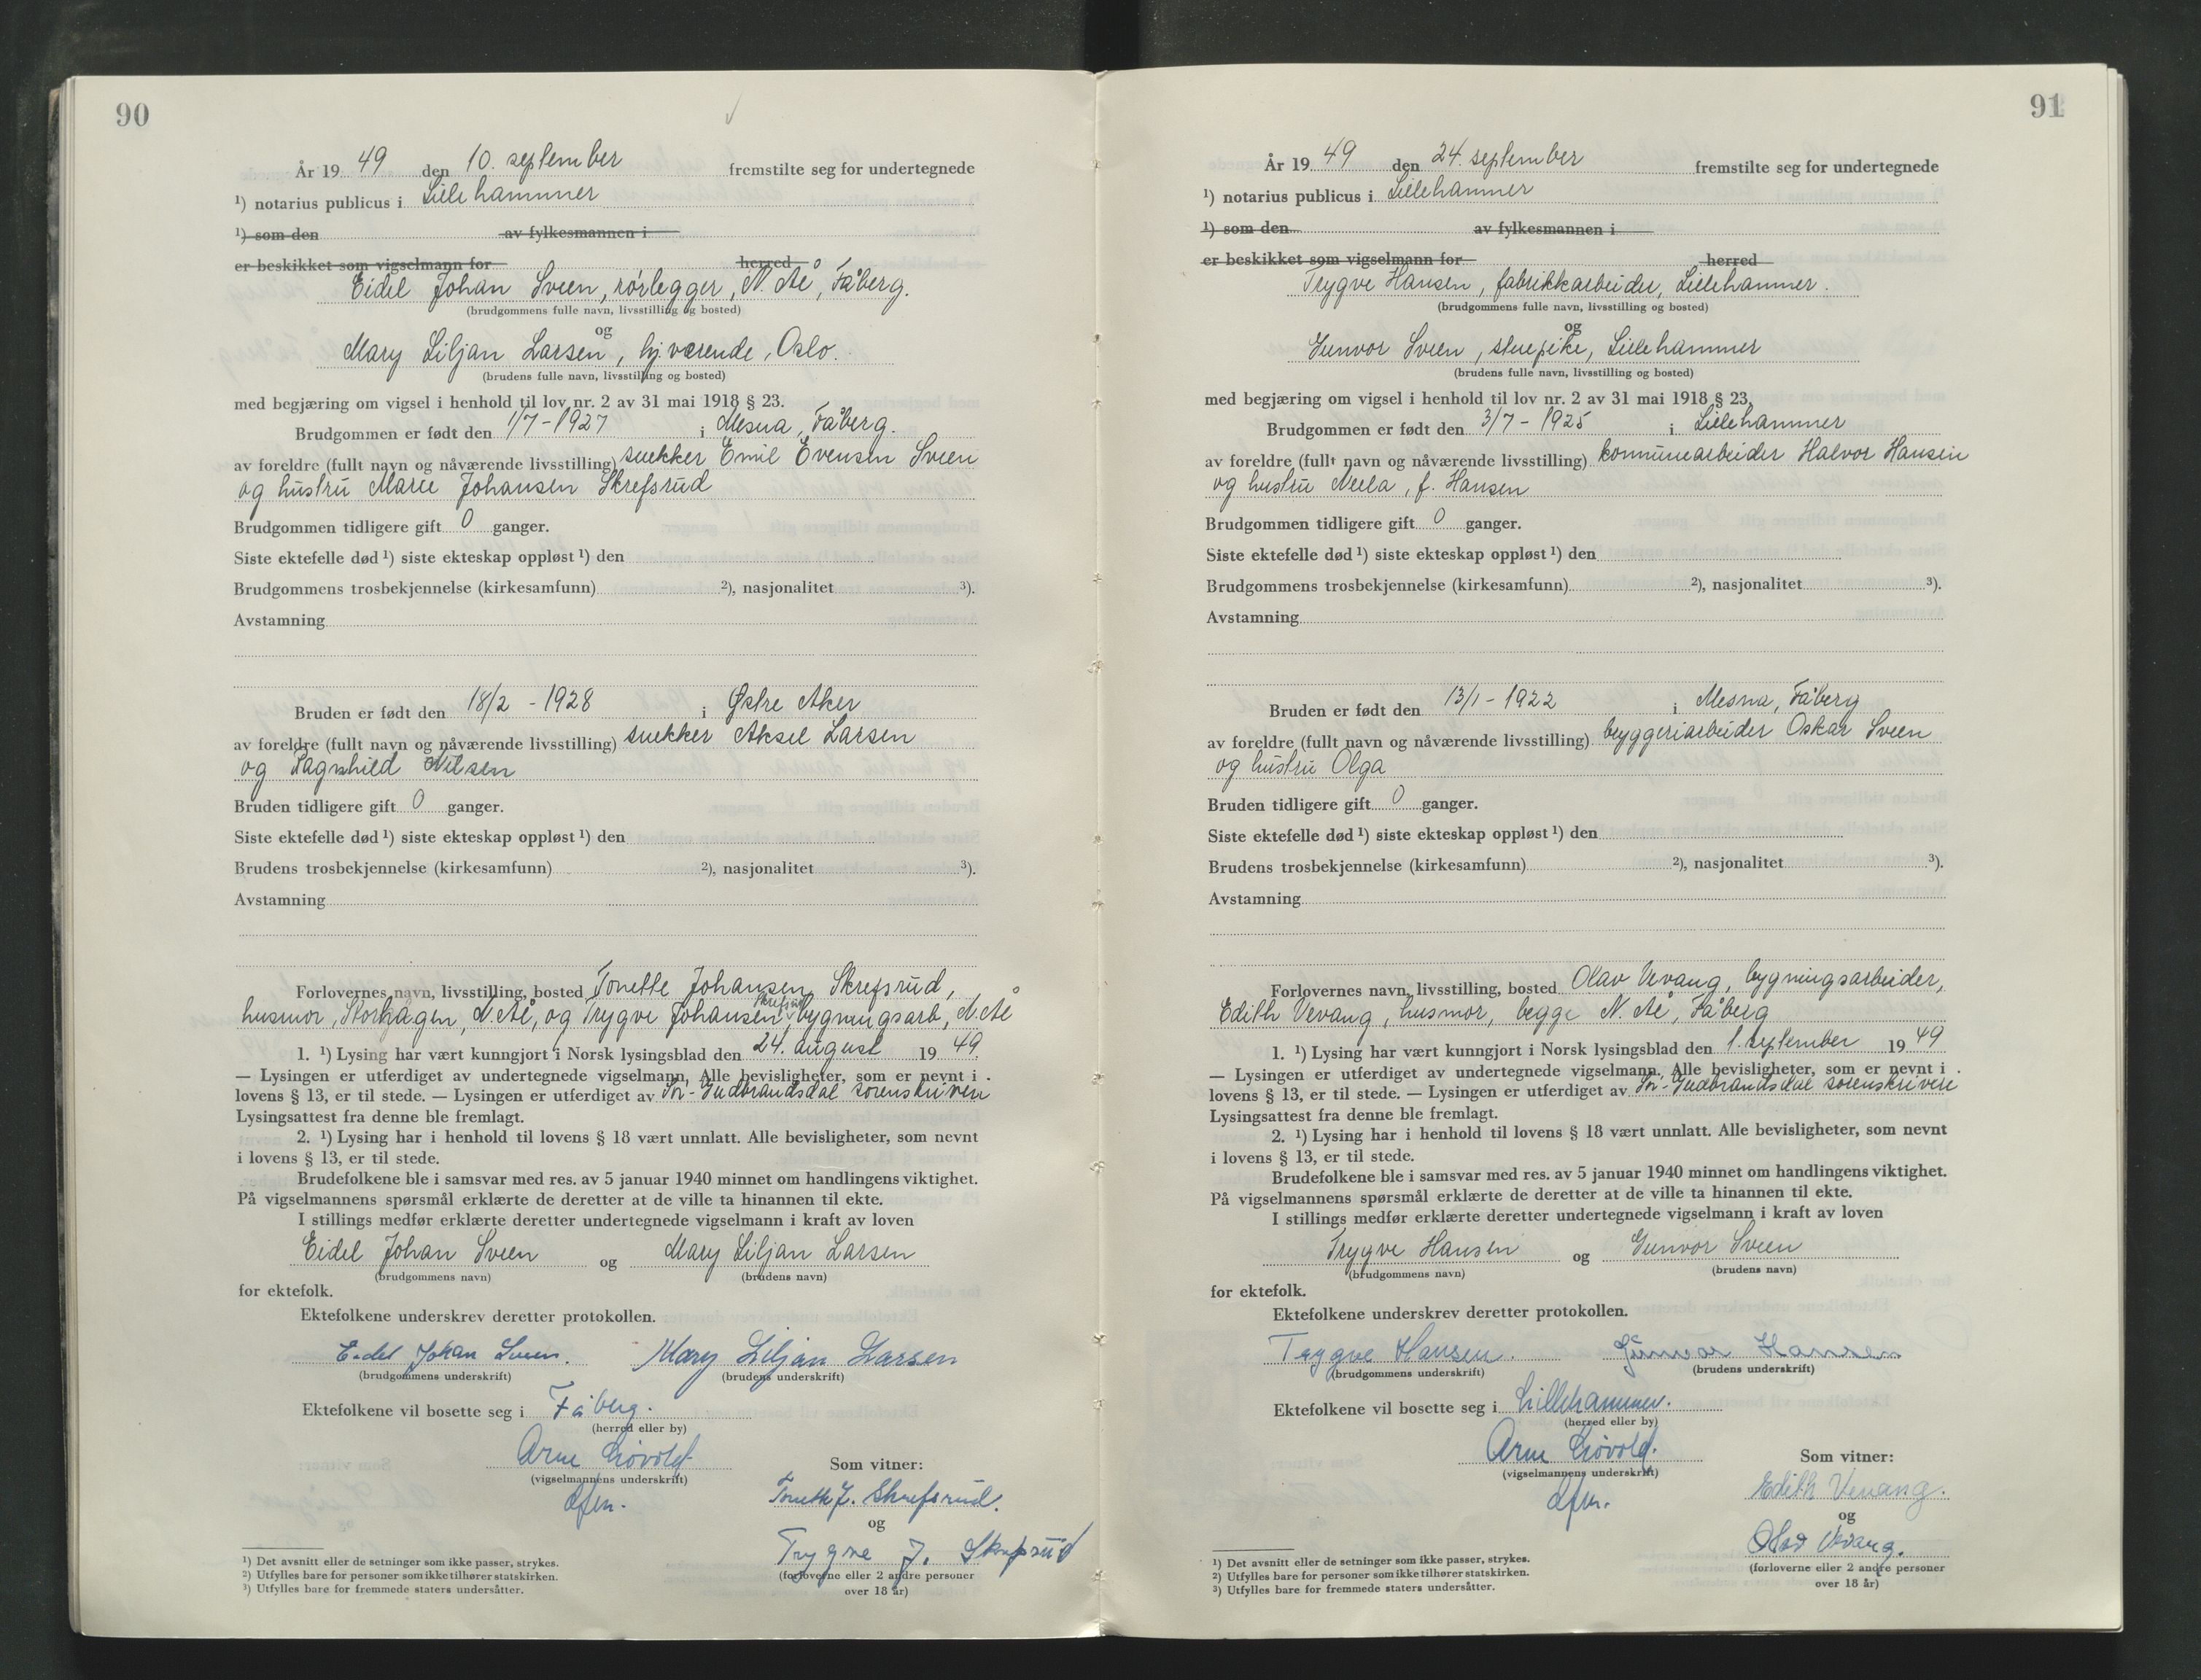 90
År 19 49 den 10. september fremstilte seg for undertegnede
¹) notarius publicus i Lillehammer
¹) som den av fylkesmannen i
er beskikket som vigselmann for herred
Eidel Johan Sveen, rørlegger, N. Ål, Fåberg.
(brudgommens fulle navn, livsstilling og bosted)
og
Mary Liljan Larsen, hj.værende, Oslo.
(brudens fulle navn, livsstilling og bosted)
med begjæring om vigsel i henhold til lov nr. 2 av 31 mai 1918 § 23.
Brudgommen er født den 1/7-1927 i Mesna, Fåberg.
av foreldre (fullt navn og nåværende livsstilling) snekker Emil Evensen Sveen
og hustru Marie Johansen Skrefsrud
Brudgommen tidligere gift 0 ganger.
Siste ektefelle død ¹) siste ekteskap oppløst ¹) den
Brudgommens trosbekjennelse (kirkesamfunn) ²), nasjonalitet ³).
Avstamning
Bruden er født den 18/2 - 1928 i Østre Aker
av foreldre (fullt navn og nåværende livsstilling) snekker Aksel Larsen
og Ragnhild Nilsen
Bruden tidligere gift 0 ganger.
Siste ektefelle død ¹) siste ekteskap oppløst ¹) den
Brudens trosbekjennelse (kirkesamfunn) ²), nasjonalitet ³).
Avstamning
Forlovernes navn, livsstilling, bosted Tonette Johansen Skrefsrud,
husmor, Storhagen, N. Ål, og Trygve Johansen Skrefsrud, bygningsarb, N. Ål
1. ¹) Lysing har vært kunngjort i Norsk lysingsblad den 24. august 19 49.
— Lysingen er utferdiget av undertegnede vigselmann. Alle bevisligheter, som er nevnt i
lovens § 13, er til stede. — Lysingen er utferdiget av Sør-Gudbrandsdal sorenskriveri
Lysingsattest fra denne ble fremlagt.
2. ¹) Lysing har i henhold til lovens § 18 vært unnlatt. Alle bevisligheter, som nevnt
i lovens § 13, er til stede.
Brudefolkene ble i samsvar med res. av 5 januar 1940 minnet om handlingens viktighet.
På vigselmannens spørsmål erklærte de deretter at de ville ta hinannen til ekte.
I stillings medfør erklærte deretter undertegnede vigselmann i kraft av loven
Eidel Johan Sveen og Mary Liljan Larsen
(brudgommens navn) (brudens navn)
for ektefolk.
Ektefolkene underskrev deretter protokollen.
Eidel Johan Sveen. Mary Liljan Larsen
(brudgommens underskrift) (brudens underskrift)
Ektefolkene vil bosette seg i Fåberg.
(herred eller by)
Arne Løvold
(vigselmannens underskrift)
Som vitner:
Tonette J. Skrefsrud.
og
Trygve J. Skrefsrud
(forloverne eller 2 andre personer
over 18 år)
¹) Det avsnitt eller de setninger som ikke passer, strykes.
²) Utfylles bare for personer som ikke tilhører statskirken.
³) Utfylles bare for fremmede staters undersåtter.
91
År 19 49 den 24. september fremstilte seg for undertegnede
¹) notarius publicus i Lillehammer
¹) som den av fylkesmannen i
er beskikket som vigselmann for herred
Trygve Hansen, fabrikkarbeider, Lillehammer.
(brudgommens fulle navn, livsstilling og bosted)
og
Gunvor Sveen, stuepike, Lillehammer
(brudens fulle navn, livsstilling og bosted)
med begjæring om vigsel i henhold til lov nr. 2 av 31 mai 1918 § 23.
Brudgommen er født den 3/7 - 1925 i Lillehammer
av foreldre (fullt navn og nåværende livsstilling) kommunearbeider Halvor Hansen
og hustru f. Hansen
Brudgommen tidligere gift 0 ganger.
Siste ektefelle død ¹) siste ekteskap oppløst ¹) den
Brudgommens trosbekjennelse (kirkesamfunn) ²), nasjonalitet ³).
Avstamning
Bruden er født den 13/1 - 1922 i Mesna, Fåberg
av foreldre (fullt navn og nåværende livsstilling) bryggeriarbeider Oskar Sveen
og hustru Olga
Bruden tidligere gift 0 ganger.
Siste ektefelle død ¹) siste ekteskap oppløst ¹) den
Brudens trosbekjennelse (kirkesamfunn) ²), nasjonalitet ³).
Avstamning
Forlovernes navn, livsstilling, bosted Olav Vevang, bygningsarbeider,
Edith Vevang, husmor, begge N. Ål, Fåberg
1. ¹) Lysing har vært kunngjort i Norsk lysingsblad den 1. september 19 49
— Lysingen er utferdiget av undertegnede vigselmann. Alle bevisligheter, som er nevnt i
lovens § 13, er til stede. — Lysingen er utferdiget av Sør-Gudbrandsdal sorenskriveri
Lysingsattest fra denne ble fremlagt.
2. ¹) Lysing har i henhold til lovens § 18 vært unnlatt. Alle bevisligheter, som nevnt
i lovens § 13, er til stede.
Brudefolkene ble i samsvar med res. av 5 januar 1940 minnet om handlingens viktighet.
På vigselmannens spørsmål erklærte de deretter at de ville ta hinannen til ekte.
I stillings medfør erklærte deretter undertegnede vigselmann i kraft av loven
Trygve Hansen og Gunvor Sveen
(brudgommens navn) (brudens navn)
for ektefolk.
Ektefolkene underskrev deretter protokollen.
Trygve Hansen. Gunvor Hansen
(brudgommens underskrift) (brudens underskrift)
Ektefolkene vil bosette seg i Lillehammer.
(herred eller by)
Arne Løvold.
(vigselmannens underskrift)
Som vitner:
Edith Vevang.
og
Olav Vevang.
(forloverne eller 2 andre personer
over 18 år)
¹) Det avsnitt eller de setninger som ikke passer, strykes.
²) Utfylles bare for personer som ikke tilhører statskirken.
³) Utfylles bare for fremmede staters undersåtter.